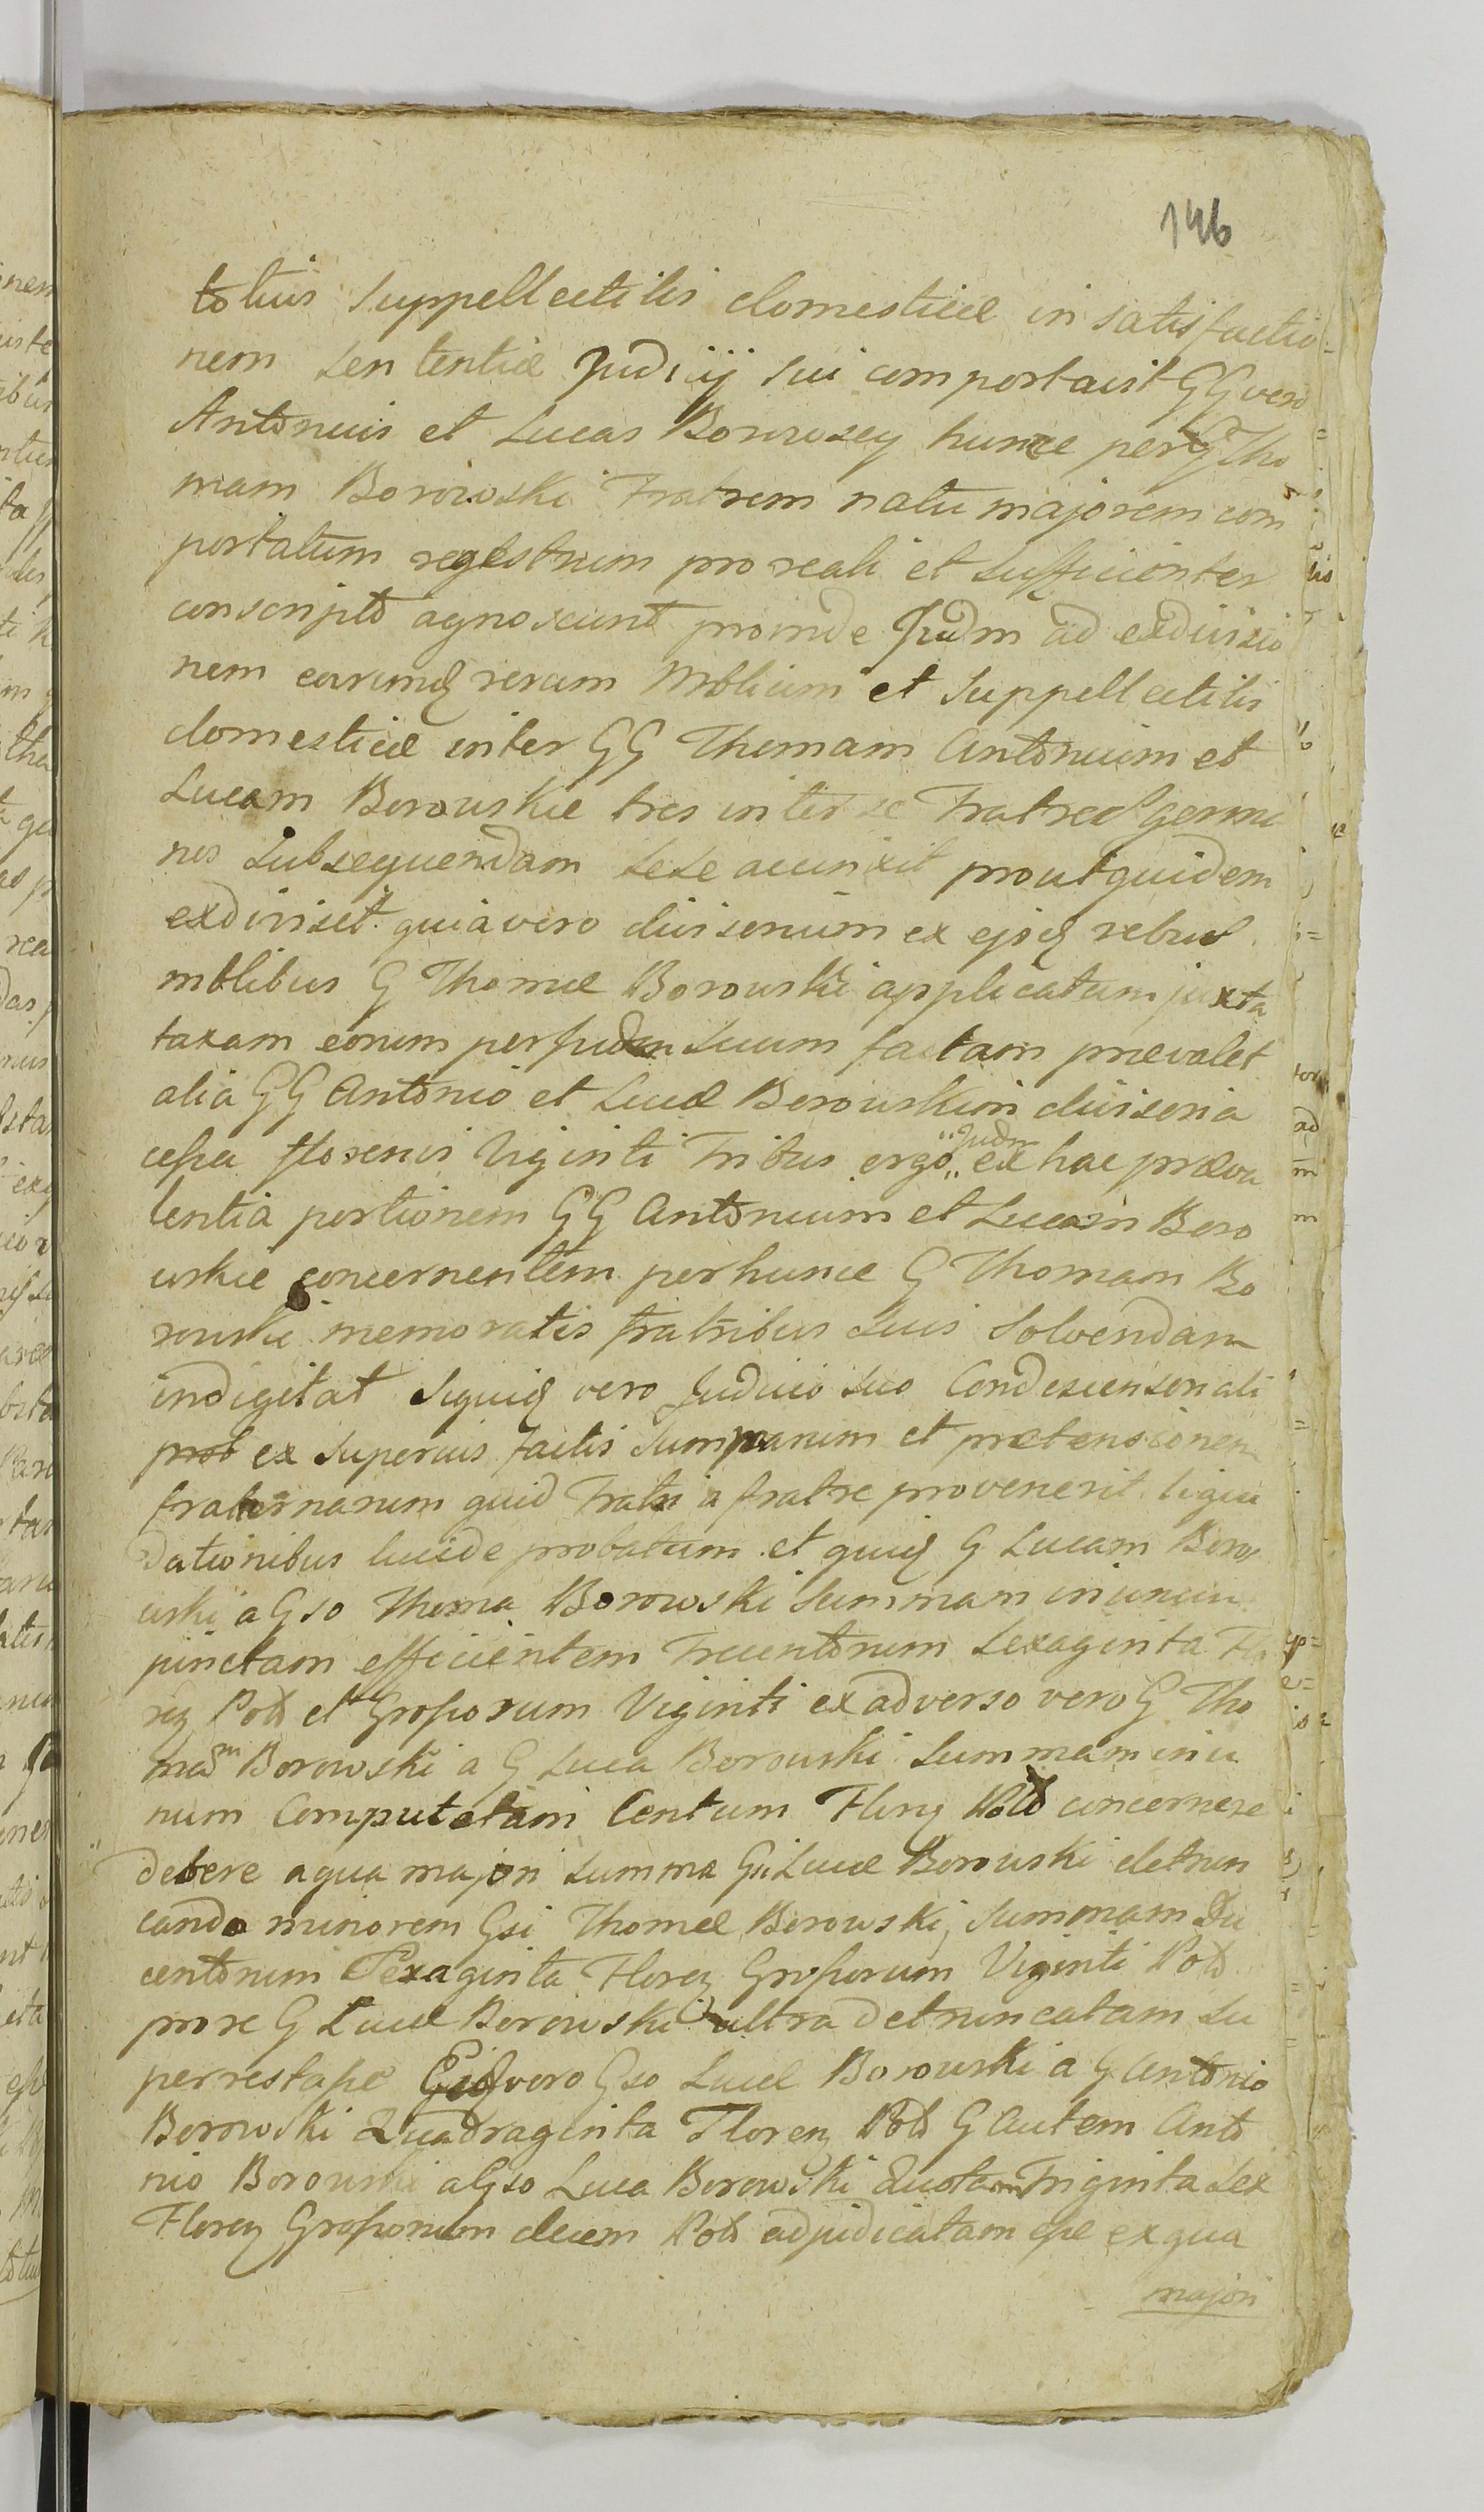 146
totius Suppellectilis domesticæ in satisfactio=
nem Sententiæ Judicij sui comportavit GG vero
Antonius et Lucas Borowscy hunce per G Tho
mam Borowski Fratrem natu majorem com
portatum regestrum pro reali et sufficienter
conscripto agnoscunt proinde Judm ad exdivisio
nem earumq rerum Mblium et Suppellectilis
domesticæ inter GG Thomam Antonium et
Lucam Borowskie tres inter se Fratres germa
nos subsequendam sese accinxit prout quidem
exdivisit. quia vero divisorium ex ejsq rebus
mblibus G Thomæ Borowski applicatum juxta
taxam eorum per Judm suum factam prævalet
alia GG Antonio et Lucæ Borowskim divisoria
cessa florenis Viginti Tribus ergo „ Judm „ ex hac præva
lentia portionem GG Antonium et Lucam Boro
wskie concernentem per hunce G Thomam Bo
rowski memoratis fratribus suis solvendam
indigitat Siquiq vero Judicio suo Condescensoriali
prob ex superius factis Summarum et prætensionem
fraternarum quid Fratri a fratre provenerit liqui
dationibus lucide probatum et quiq G Lucam Boro
wski a Gso Thoma Borowski Summam in unum
junctam efficientem Trecentorum Sexaginta Flo
req Pols et Grossorum Viginti ex adverso vero G Tho
mam Borowski a G Luca Borowski Summam in u
num Computatam Centum Flnrq Pols concernere
debere a qua majori summa Gsi Lucæ Borowski detrun
cando minorem Gsi Thomæ Borowski, Summam Du
centorum Sexaginta Floreq Grossorum Viginti Pols
pro re G Lucæ Borowski ultra detruncatam su
perrestasse Eidq vero Gso Lucæ Borowski a G Antonio
Borowski Quadraginta Floreq Pols G autem Anto
nio Borowski a Gso Luca Borowski Quotam Triginta Sex
Floreq Grossorum decem Pols adjudicatam esse ex qua
majori